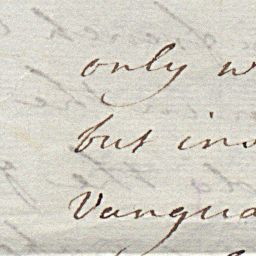 only w
but ins
Vangua